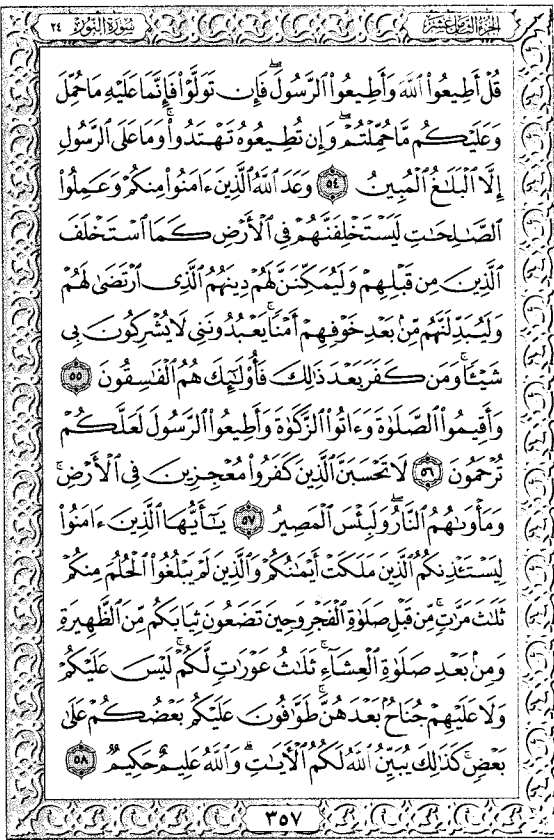 سُورَةُ النُّورِ ٢٤
الجُزْءُ الثَّامِنَ عَشَرَ
قُلْ أَطِيعُوا۟ ٱللَّهَ وَأَطِيعُوا۟ ٱلرَّسُولَ ۖ فَإِن تَوَلَّوْا۟ فَإِنَّمَا عَلَيْهِ مَا حُمِّلَ
وَعَلَيْكُم مَّا حُمِّلْتُمْ ۖ وَإِن تُطِيعُوهُ تَهْتَدُوا۟ ۚ وَمَا عَلَى ٱلرَّسُولِ
إِلَّا ٱلْبَلَـٰغُ ٱلْمُبِينُ ٥٤ وَعَدَ ٱللَّهُ ٱلَّذِينَ ءَامَنُوا۟ مِنكُمْ وَعَمِلُوا۟
ٱلصَّـٰلِحَـٰتِ لَيَسْتَخْلِفَنَّهُمْ فِى ٱلْأَرْضِ كَمَا ٱسْتَخْلَفَ
ٱلَّذِينَ مِن قَبْلِهِمْ وَلَيُمَكِّنَنَّ لَهُمْ دِينَهُمُ ٱلَّذِى ٱرْتَضَىٰ لَهُمْ
وَلَيُبَدِّلَنَّهُم مِّنۢ بَعْدِ خَوْفِهِمْ أَمْنًا ۚ يَعْبُدُونَنِى لَا يُشْرِكُونَ بِى
شَيْـًٔا ۚ وَمَن كَفَرَ بَعْدَ ذَٰلِكَ فَأُو۟لَـٰٓئِكَ هُمُ ٱلْفَـٰسِقُونَ ٥٥
وَأَقِيمُوا۟ ٱلصَّلَوٰةَ وَءَاتُوا۟ ٱلزَّكَوٰةَ وَأَطِيعُوا۟ ٱلرَّسُولَ لَعَلَّكُمْ
تُرْحَمُونَ ٥٦ لَا تَحْسَبَنَّ ٱلَّذِينَ كَفَرُوا۟ مُعْجِزِينَ فِى ٱلْأَرْضِ ۚ
وَمَأْوَىٰهُمُ ٱلنَّارُ ۖ وَلَبِئْسَ ٱلْمَصِيرُ ٥٧ يَـٰٓأَيُّهَا ٱلَّذِينَ ءَامَنُوا۟
لِيَسْتَـْٔذِنكُمُ ٱلَّذِينَ مَلَكَتْ أَيْمَـٰنُكُمْ وَٱلَّذِينَ لَمْ يَبْلُغُوا۟ ٱلْحُلُمَ مِنكُمْ
ثَلَـٰثَ مَرَّٰتٍ ۚ مِّن قَبْلِ صَلَوٰةِ ٱلْفَجْرِ وَحِينَ تَضَعُونَ ثِيَابَكُم مِّنَ ٱلظَّهِيرَةِ
وَمِنۢ بَعْدِ صَلَوٰةِ ٱلْعِشَآءِ ۚ ثَلَـٰثُ عَوْرَٰتٍ لَّكُمْ ۚ لَيْسَ عَلَيْكُمْ
وَلَا عَلَيْهِمْ جُنَاحٌۢ بَعْدَهُنَّ ۚ طَوَّٰفُونَ عَلَيْكُم بَعْضُكُمْ عَلَىٰ
بَعْضٍ ۚ كَذَٰلِكَ يُبَيِّنُ ٱللَّهُ لَكُمُ ٱلْـَٔايَـٰتِ ۗ وَٱللَّهُ عَلِيمٌ حَكِيمٌ ٥٨
٣٥٧